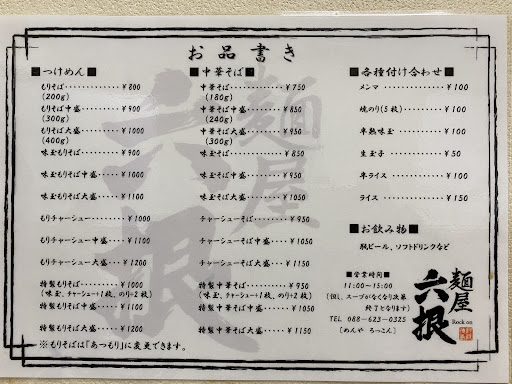 お品書き
■つけめん■
もりそば・・・・・・・・・￥800
(200g)
もりそば中盛・・・・・￥900
(300g)
もりそば大盛・・・・・￥1000
(400g)
味玉もりそば・・・・・￥900
味玉もりそば中盛・・・・￥1000
味玉もりそば大盛・・・・￥1100
もりチャーシュー・・・・・￥1000
もりチャーシュー中盛・・・・￥1100
もりチャーシュー大盛・・・・￥1200
特製もりそば・・・・・￥1000
(味玉、チャーシュー1枚、のり2枚)
特製もりそば中盛・・・・￥1100
特製もりそば大盛・・・・￥1200
※もりそばは「あつもり」に変更できます。
■中華そば■
中華そば・・・・・・・・・￥750
(180g)
中華そば中盛・・・・・￥850
(240g)
中華そば大盛・・・・・￥950
(300g)
味玉中華そば・・・・・￥850
味玉中華そば中盛・・・・￥950
味玉中華そば大盛・・・・￥1050
チャーシューそば・・・・・￥950
チャーシューそば中盛・・・・￥1050
チャーシューそば大盛・・・・￥1150
特製中華そば・・・・・￥950
(味玉、チャーシュー1枚、のり2枚)
特製中華そば中盛・・・・￥1050
特製中華そば大盛・・・・￥1150
■各種付け合わせ■
メンマ・・・・・・・・・￥100
焼のり(5枚)・・・・・￥100
半熟味玉・・・・・・・￥100
生玉子・・・・・・・・・￥50
半ライス・・・・・・・￥100
ライス・・・・・・・・・￥150
■お飲み物■
瓶ビール、ソフトドリンクなど
■営業時間■
11:00～15:00
(但し、スープがなくなり次第
終了となります)
TEL 088-623-0325
[めんや ろっこん]
麺屋
六根
Rock on
麺屋
六根